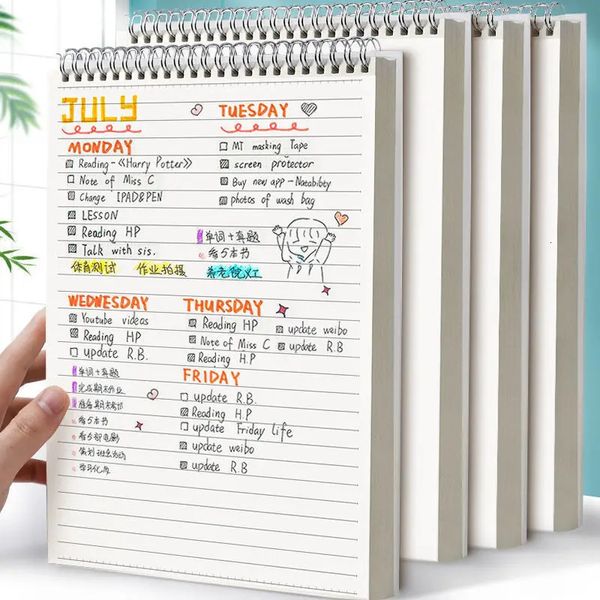 JULY
MONDAY
Reading-《Harry Potter》
Note of Miss C
Change IPAD&PEN
LESSON
Reading HP
Talk with sis.
体育测试 作业拍摄
TUESDAY
MT masking Tape
screen protector
Buy new app-Neabibty
photos of wash bag
单词+真题
看5本书
WEDNESDAY
Youtube videos
Reading HP
update R.B.
单词+真题
完成期末作业
准备期末考试
看5本书
看5部电影
策划班会活动
THURSDAY
Reading HP
Note of Miss C
Reading H.P
update weibo
update R.B
FRIDAY
update R.B.
Reading H.P
update Friday life
update weibo
update R.B